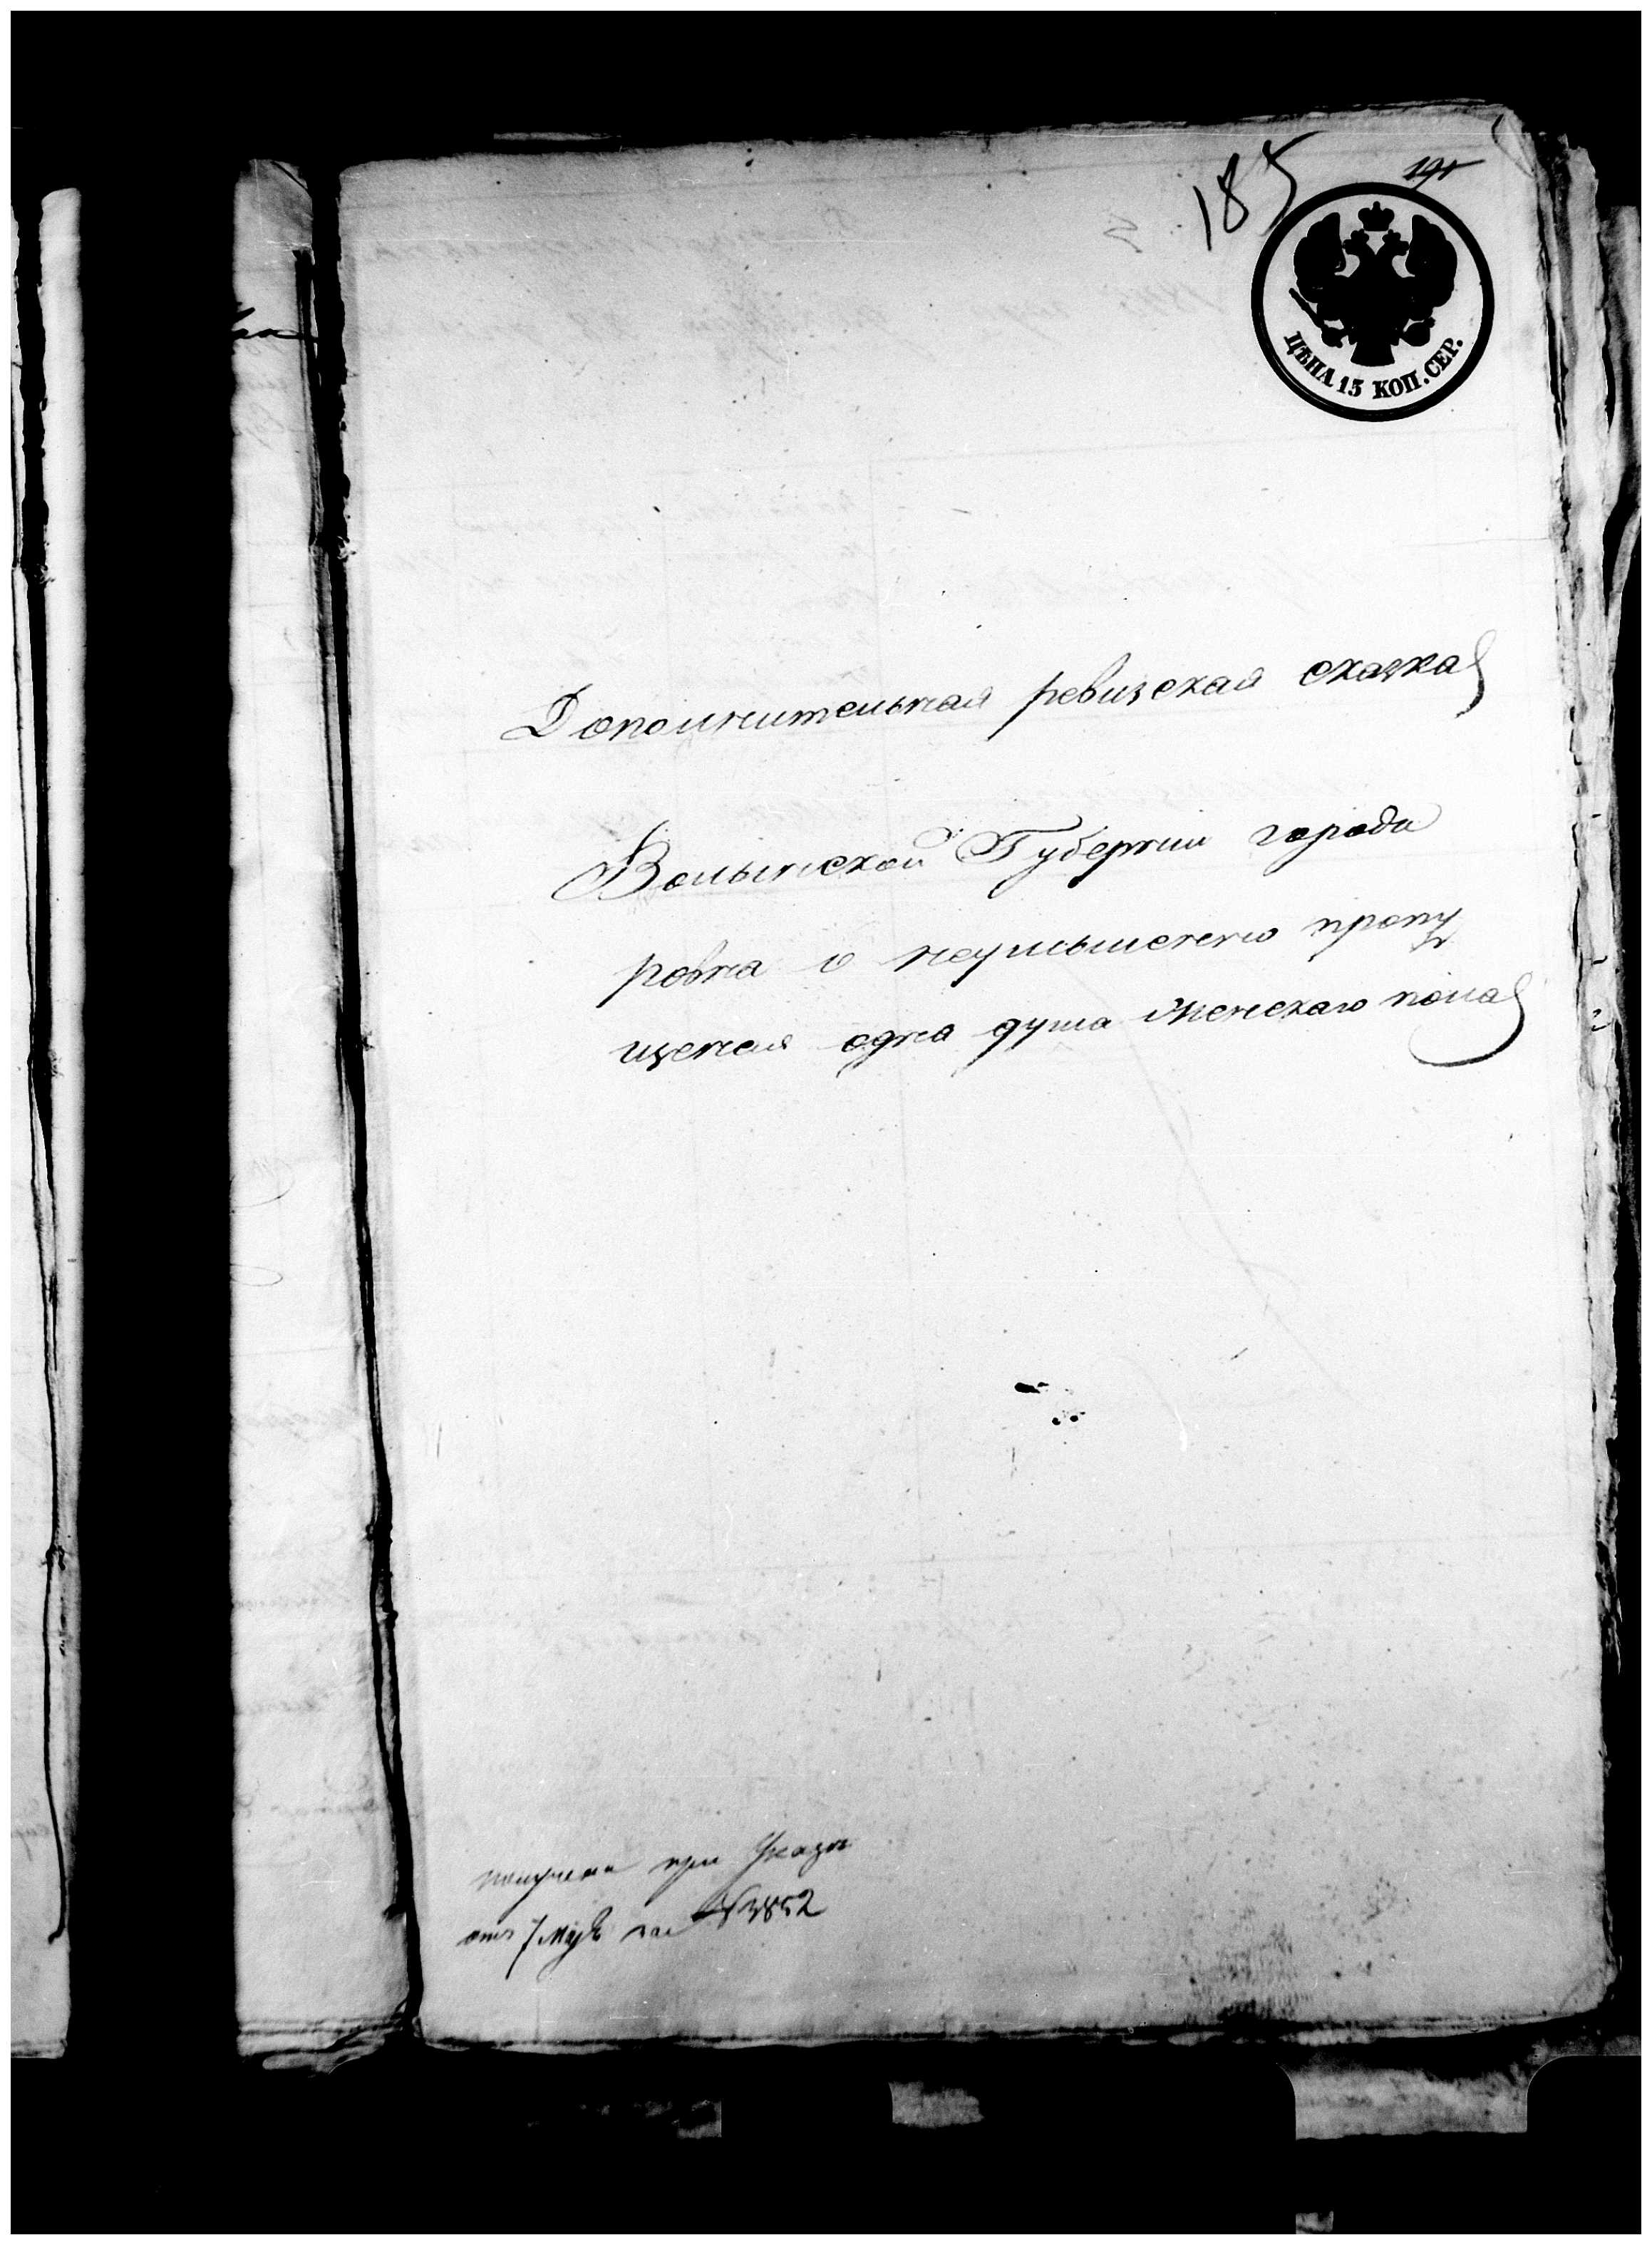 185
191
ЦѢНА 15 КОП. СЕР.
Дополнительная ревизская сказка
Волынской Губернии города
ровна о неумышлено пропу
щеная одна душа женскаго пола
получена при Указе
отъ 7 за №3852